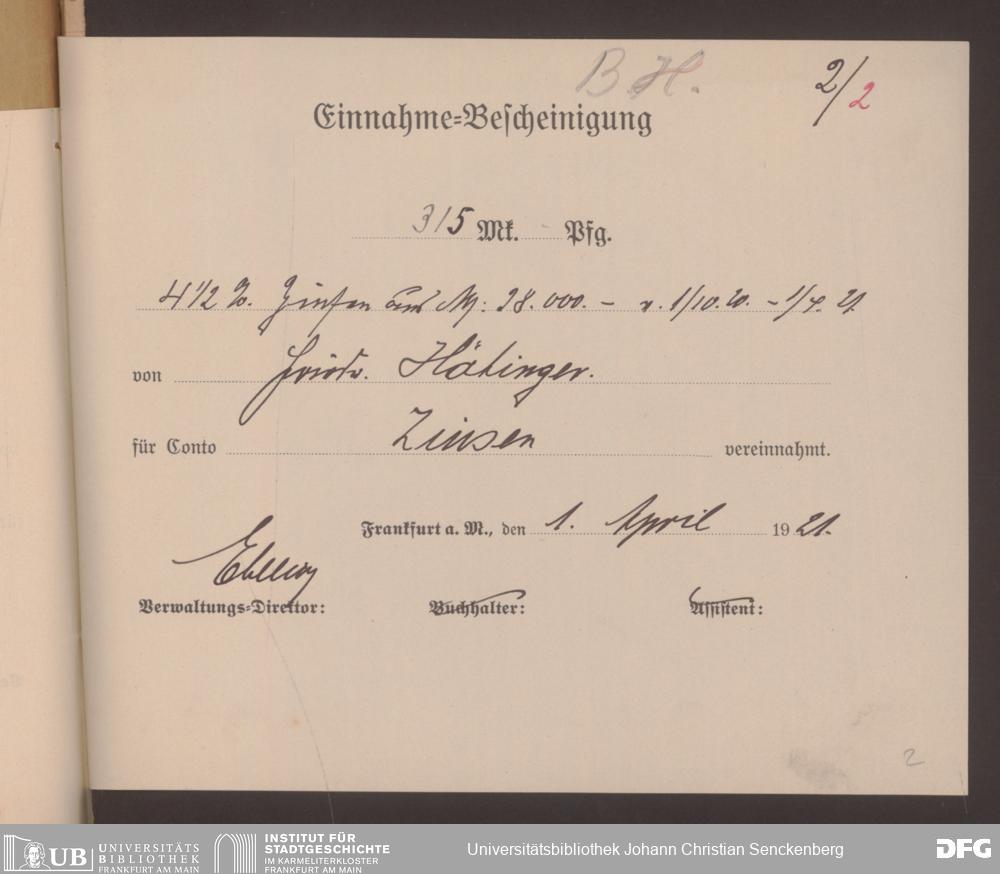 B. H.
2/2
Einnahme-Bescheinigung
315 Mk. - Pfg.
4 1/2 %. Zinsen aus M: 28.000. – v. 1/10. 20. – 1/4. 21
von Friedr. Hötinger.
für Conto Zinsen vereinnahmt.
Frankfurt a. M., den 1. April 1921.
Verwaltungs-Direktor: Buchhalter: Assistent:
2
UB UNIVERSITÄTS
BIBLIOTHEK
FRANKFURT AM MAIN
INSTITUT FÜR
STADTGESCHICHTE
IM KARMELITERKLOSTER
FRANKFURT AM MAIN
Universitätsbibliothek Johann Christian Senckenberg
DFG